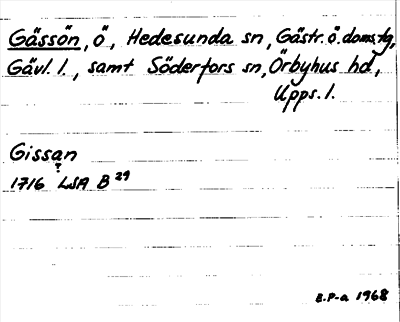 Gässön, ö, Hedesunda sn, Gästr. ö. doms.tg,
Gävl. l., samt Söderfors sn, Örbyhus hd,
Upps. l.
Gissan
?
1716 LSA B 29
E.P-a 1968